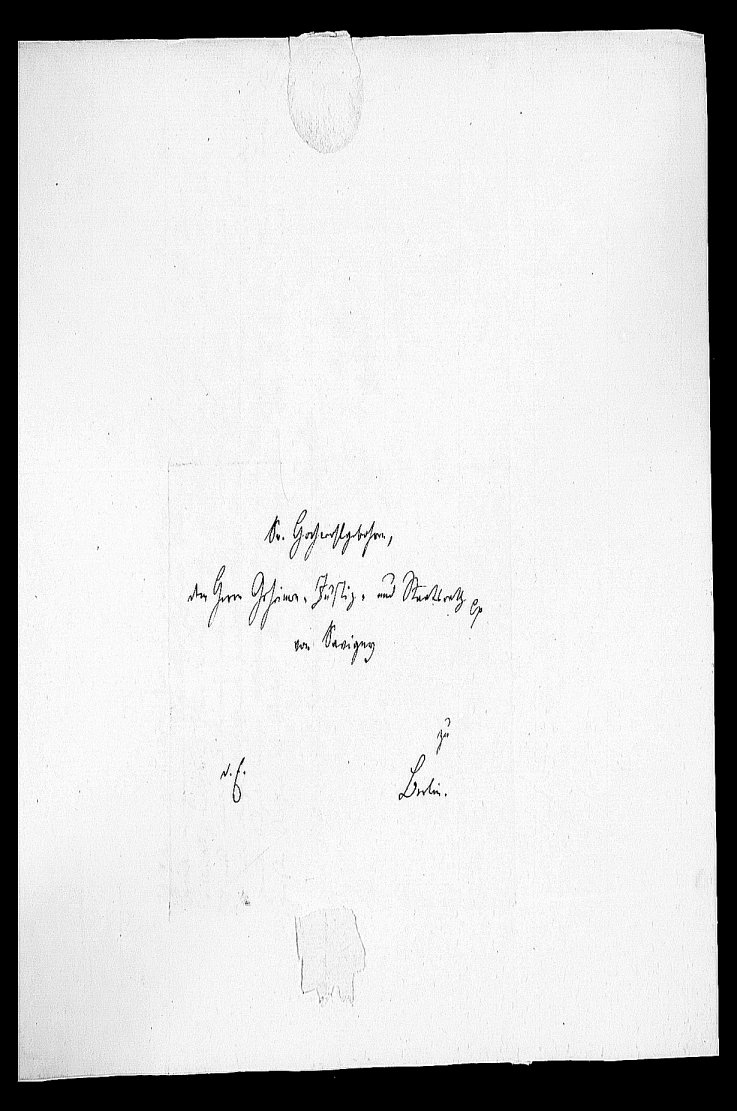 Sr. Hochwohlgebohren,
dem Herrn Geheimen-Justiz- und Staatsrath pp
von Savigny
zu
d. E. Berlin.